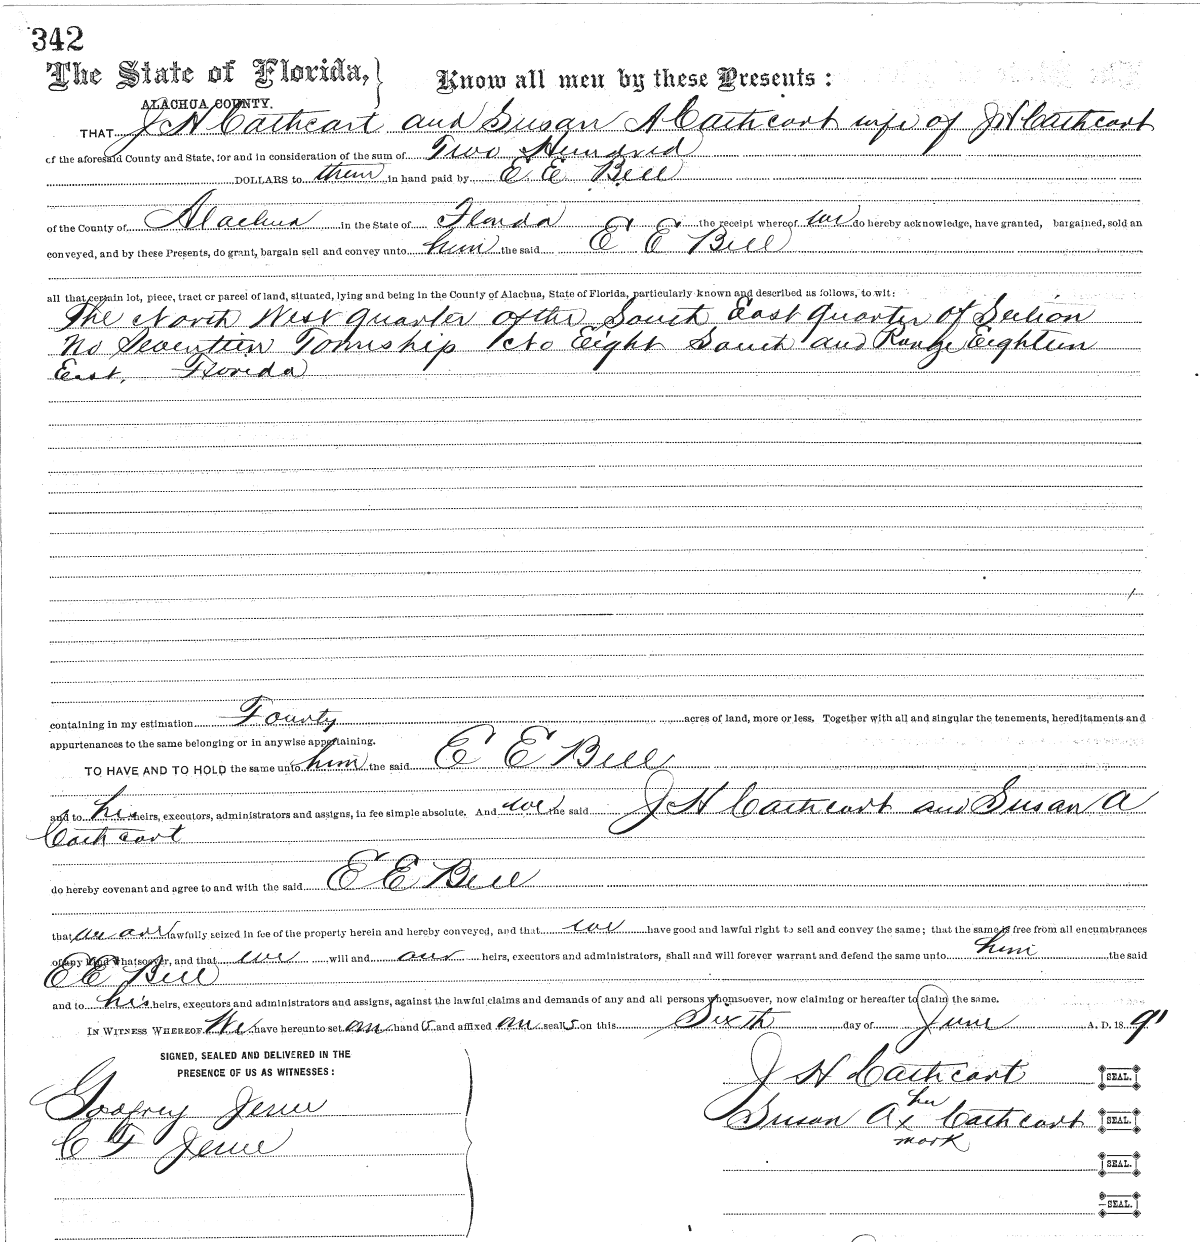 342
The State of Florida,
ALACHUA COUNTY.
Know all men by these Presents:
THAT J H Cathcart and Susan A Cathcart wife of J H Cathcart
of the aforesaid County and State, for and in consideration of the sum of Two Hundred
DOLLARS to them in hand paid by E E Bell
of the County of Alachua in the State of Florida the receipt whereof we do hereby acknowledge, have granted, bargained, sold an
conveyed, and by these Presents, do grant, bargain sell and convey unto him the said E E Bell
all that certain lot, piece, tract or parcel of land, situated, lying and being in the County of Alachua, State of Florida, particularly known and described as follows, to wit:
The North West quarter of the South East quarter of Section
No Seventeen Township No Eight South and Range Eighteen
East, Florida
containing in my estimation Fourty acres of land, more or less, Together with all and singular the tenements, hereditaments and
appurtenances to the same belonging or in anywise appertaining.
TO HAVE AND TO HOLD the same unto him the said E E Bell
and to his heirs, executors, administrators and assigns, in fee simple absolute. And we the said J H Cathcart and Susan A
Cathcart
do hereby covenant and agree to and with the said E E Bell
that we are lawfully seized in fee of the property herein and hereby conveyed, and that we have good and lawful right to sell and convey the same; that the same is free from all encumbrances
of any kind whatsoever, and that we will and our heirs, executors and administrators, shall and will forever warrant and defend the same unto him the said
E E Bell
and to his heirs, executors and administrators and assigns, against the lawful claims and demands of any and all persons whomsoever, now claiming or hereafter to claim the same.
IN WITNESS WHEREOF We have hereunto set our hand s and affixed our seal s on this Sixth day of June A. D. 18 91
SIGNED, SEALED AND DELIVERED IN THE
PRESENCE OF US AS WITNESSES:
J H Cathcart SEAL.
Godfrey Jerue
her
Susan A x Cathcart SEAL.
mark
C F Jerue
SEAL.
SEAL.